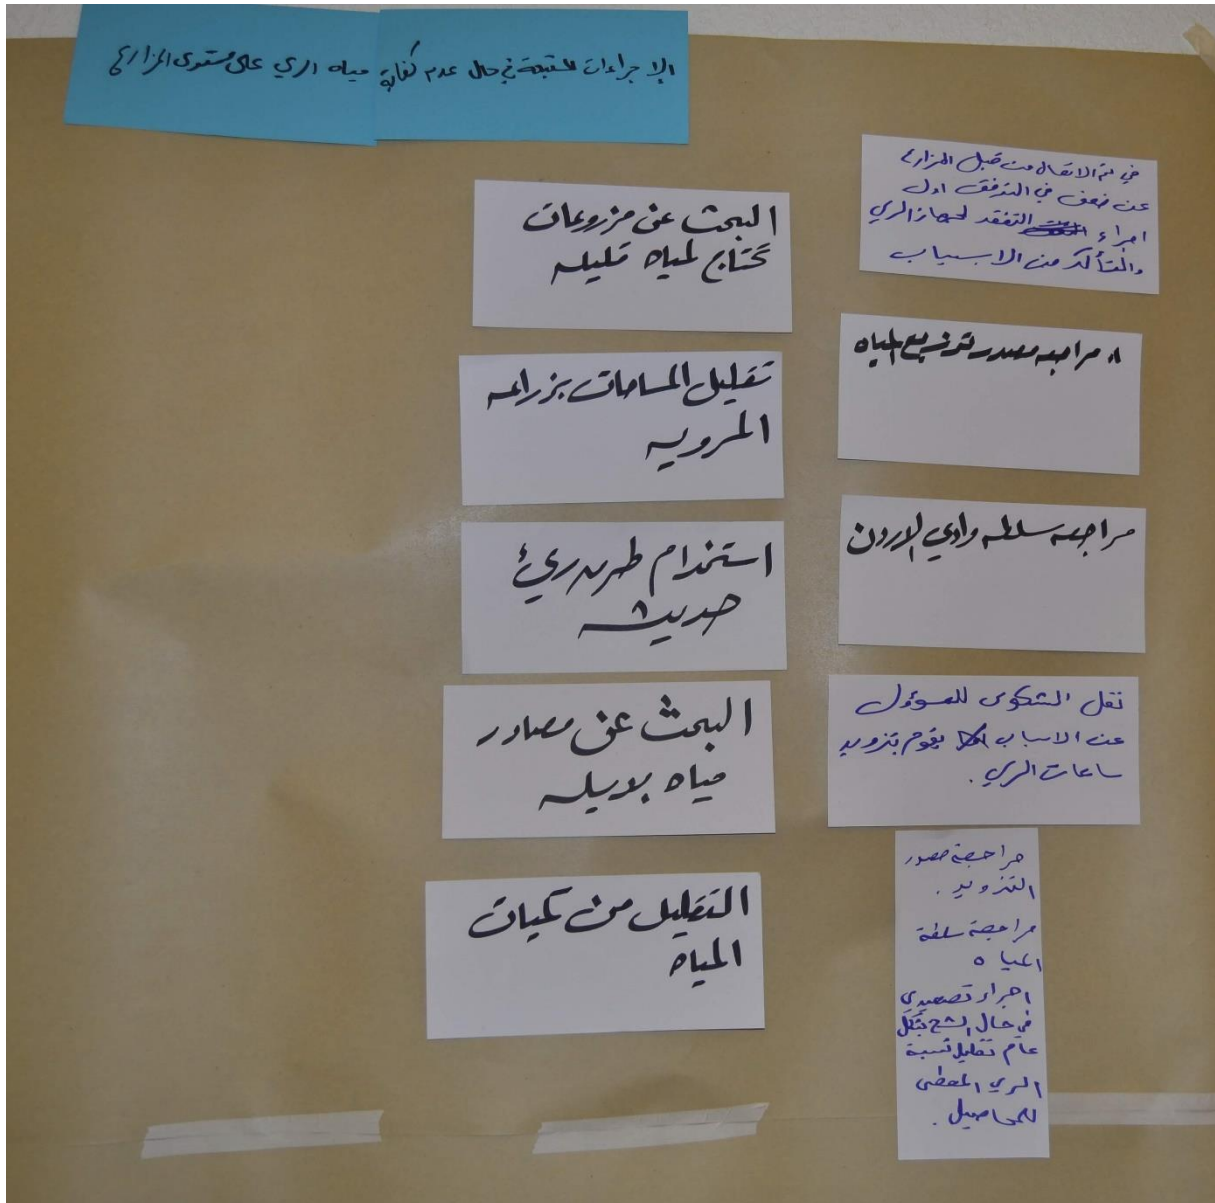 الإجراءات المتبعة في حال عدم كفاية مياه الري على مستوى المزارع
في تم الاتصال من قبل المزارع
عن ضعف في التدفق اول
اجراء التفقد لجهاز الري
والتأكد من الاسباب
مراجعه مصدر توزيع المياه
مراجعه سلطه وادي الاردن
نقل الشكوى للمسؤول
عن الاسباب يقوم بتزويد
ساعات الري .
مراجعة مصدر
التزويد .
مراجعة سلطة
المياه
اجراء تصعيدي
في حال الشح بشكل
عام تقليل نسبة
الري المعطى
للمحاصيل .
البحث عن مزروعات
تحتاج لمياه قليله
تقليل المساحات بزراعه
المرويه
استخدام طرق ريء
حديثه
البحث عن مصادر
مياه بديله
التقليل من كميات
المياه